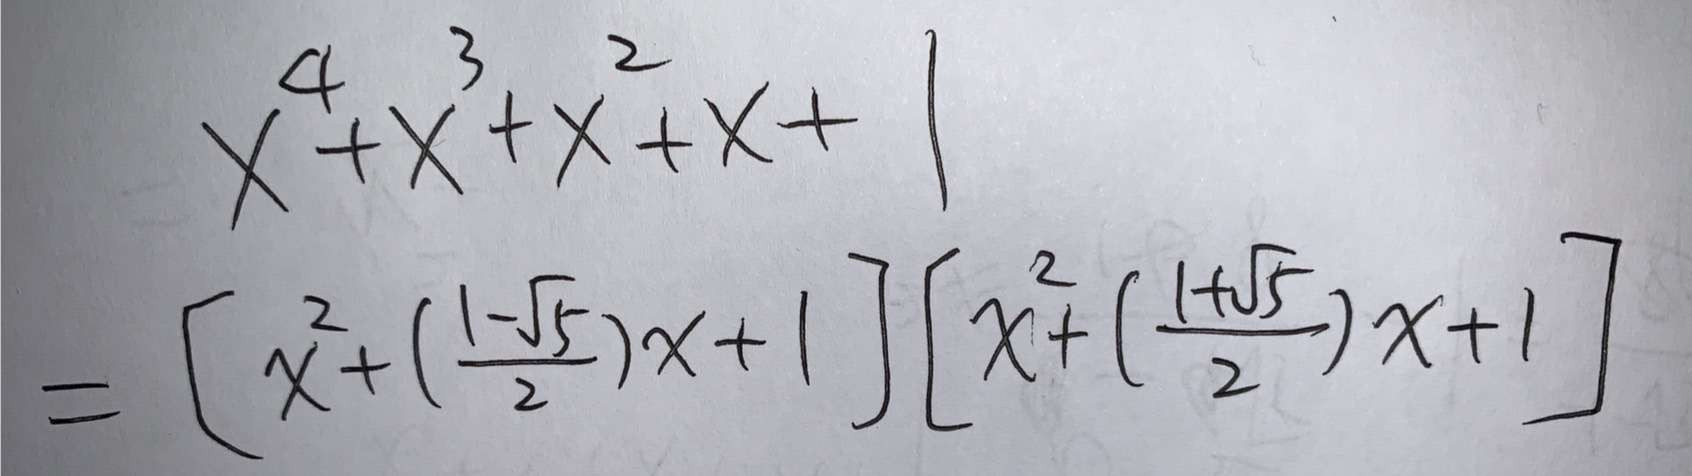 x⁴+x³+x²+x+1
=[x²+(\frac{1-√5}{2})x+1][x²+(\frac{1+√5}{2})x+1]